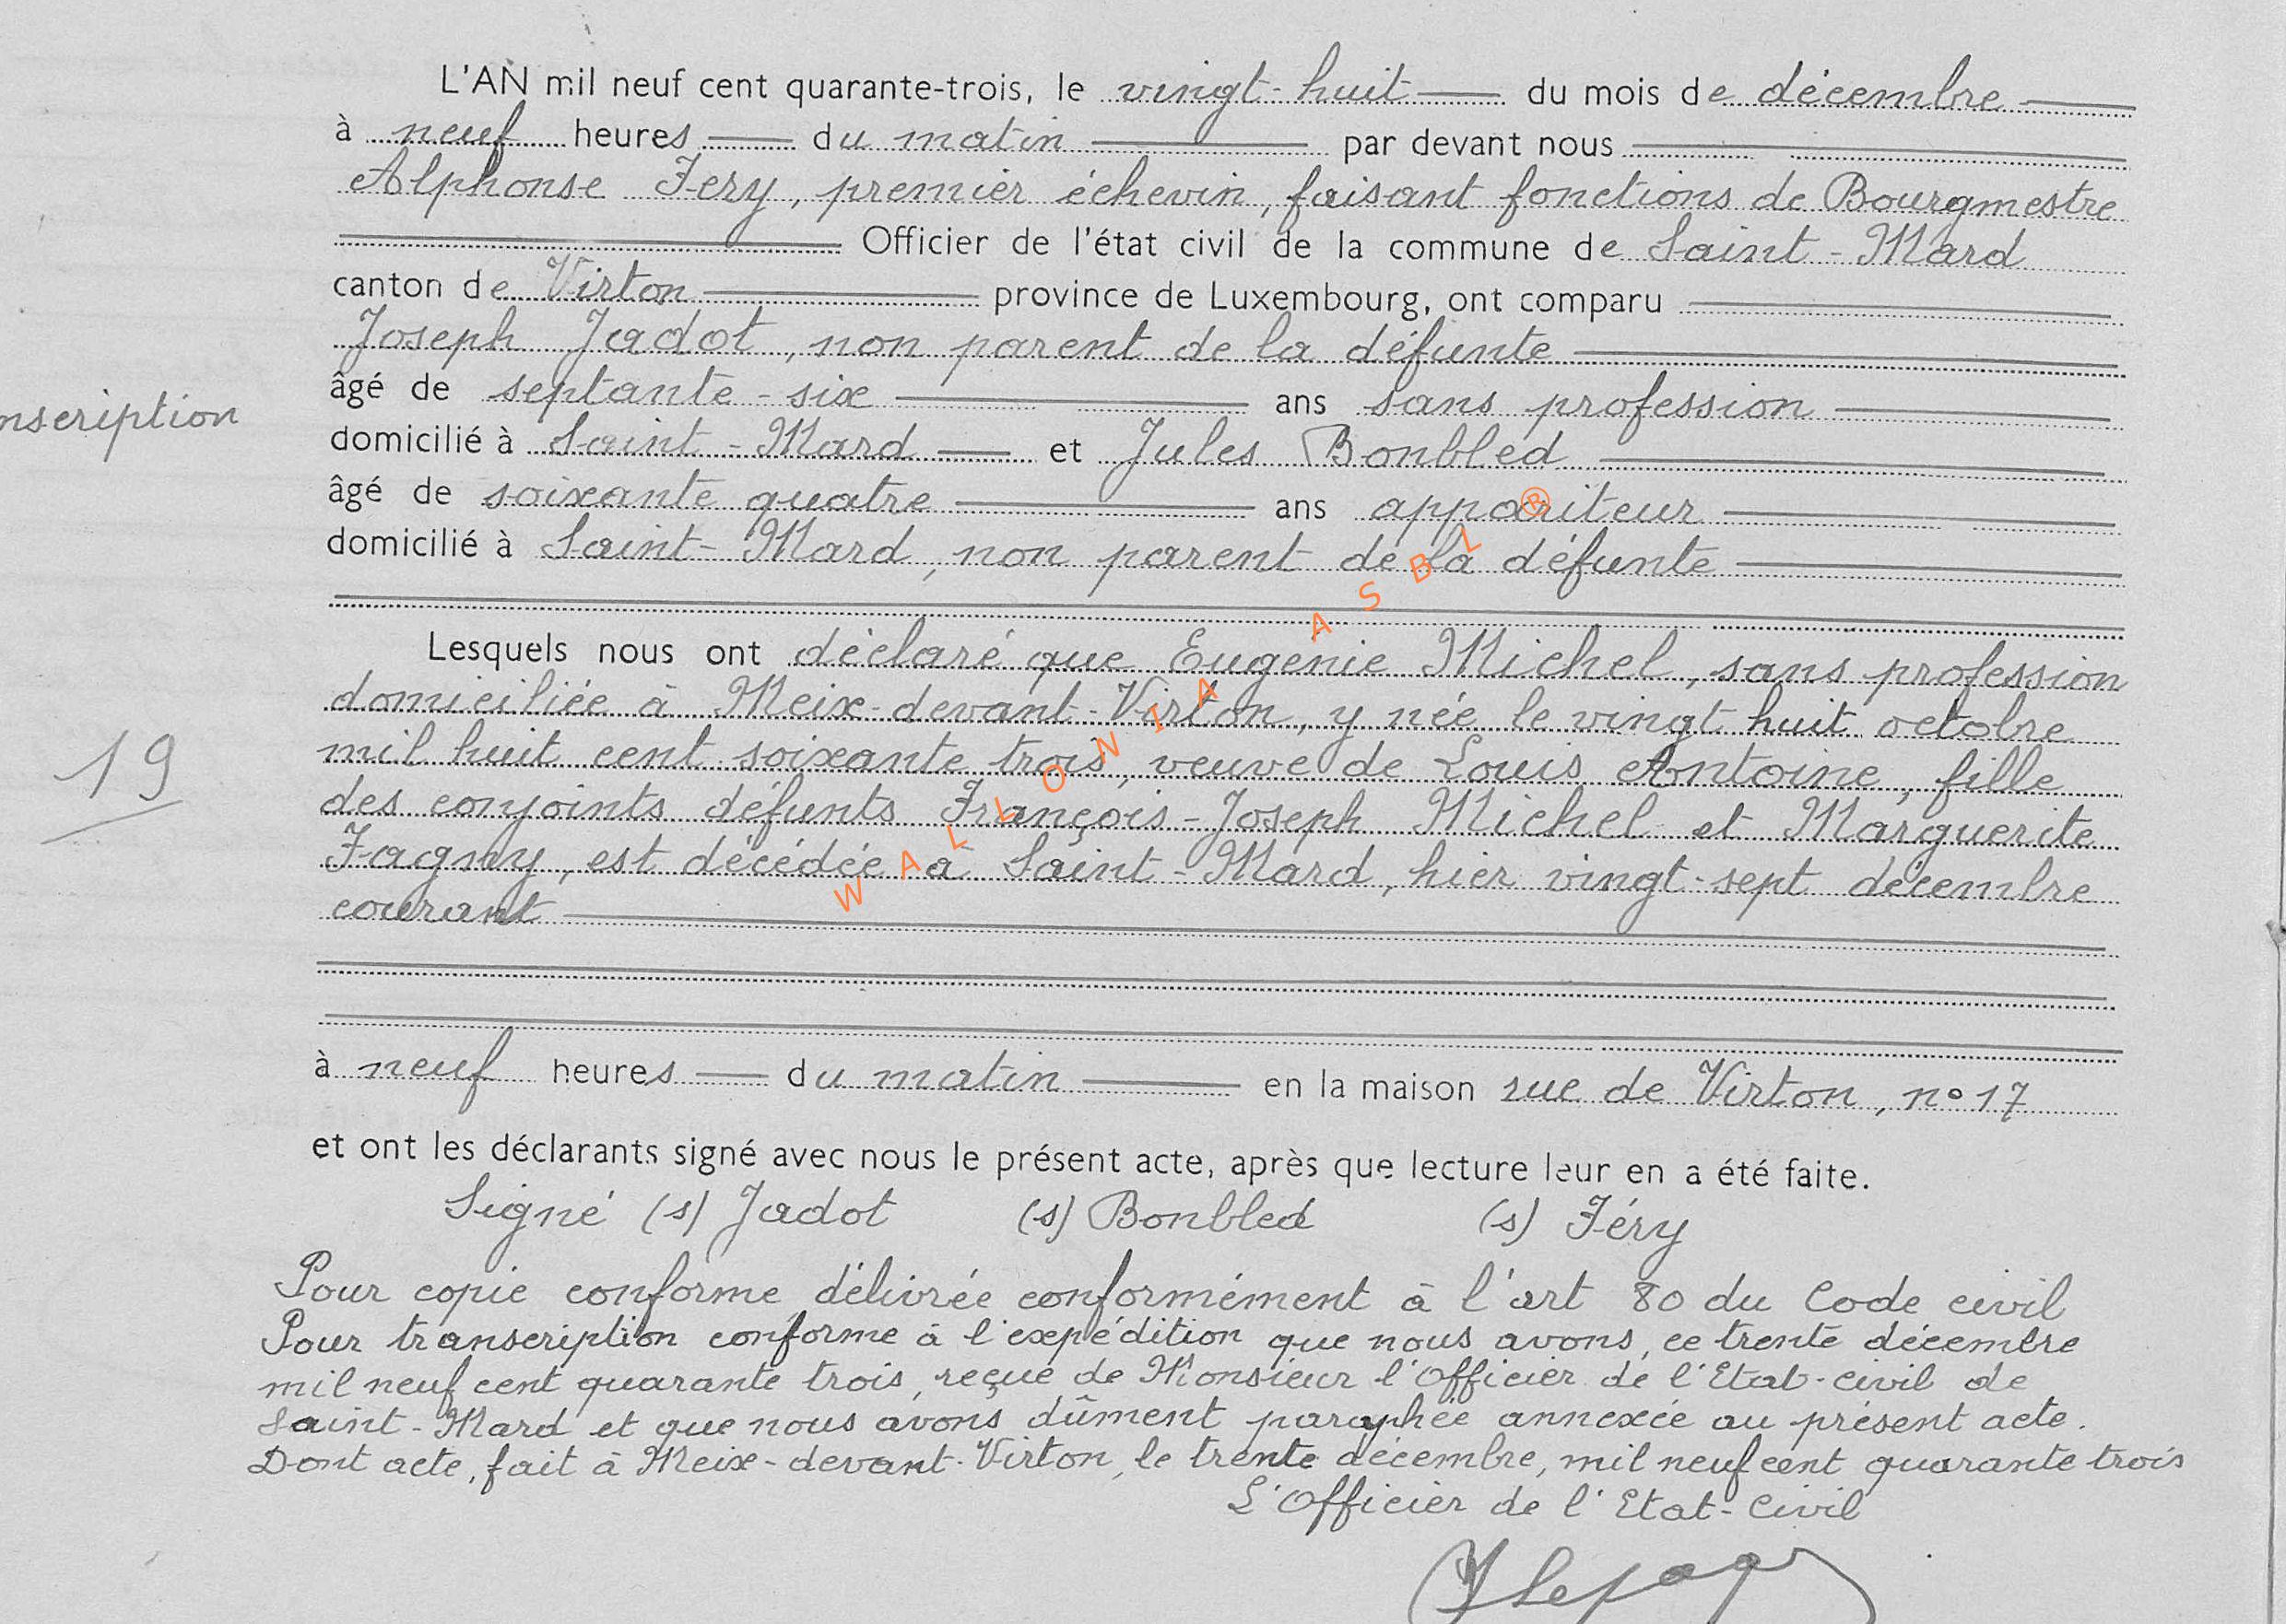 L'AN mil neuf cent quarante-trois, le vingt-huit du mois de décembre
à neuf heures du matin par devant nous
Alphonse Fery, premier échevin, faisant fonctions de Bourgmestre
Officier de l'état civil de la commune de Saint-Mard
canton de Virton province de Luxembourg, ont comparu
Joseph Jadot, non parent de la défunte
âgé de septante-six ans sans profession
nscription
domicilié à Saint-Mard et Jules Bonbled
âgé de soixante quatre ans appariteur
domicilié à Saint-Mard, non parent de la défunte
Lesquels nous ont déclaré que Eugénie Michel, sans profession
domiciliée à Meix-devant-Virton, y née le vingt huit octobre
19
mil huit cent soixante trois, veuve de Louis Antoine, fille
des conjoints défunts François-Joseph Michel et Marguerite
Fagny, est décédée à Saint-Mard, hier vingt-sept décembre
courant
WALLONIA ASBL ®
à neuf heures du matin en la maison rue de Virton, n° 17
et ont les déclarants signé avec nous le présent acte, après que lecture leur en a été faite.
Signé (s) Jadot (s) Bonbled (s) Féry
Pour copie conforme délivrée conformément à l'art 80 du Code civil
Pour transcription conforme à l'exepédition que nous avons, ce trente décembre
mil neuf cent quarante trois, reçue de Monsieur l'Officier de l'Etat-civil de
Saint-Mard et que nous avons dûment paraphée annexée au présent acte.
Dont acte, fait à Meix-devant-Virton, le trente décembre, mil neuf cent quarante trois
L'Officier de l'Etat-Civil